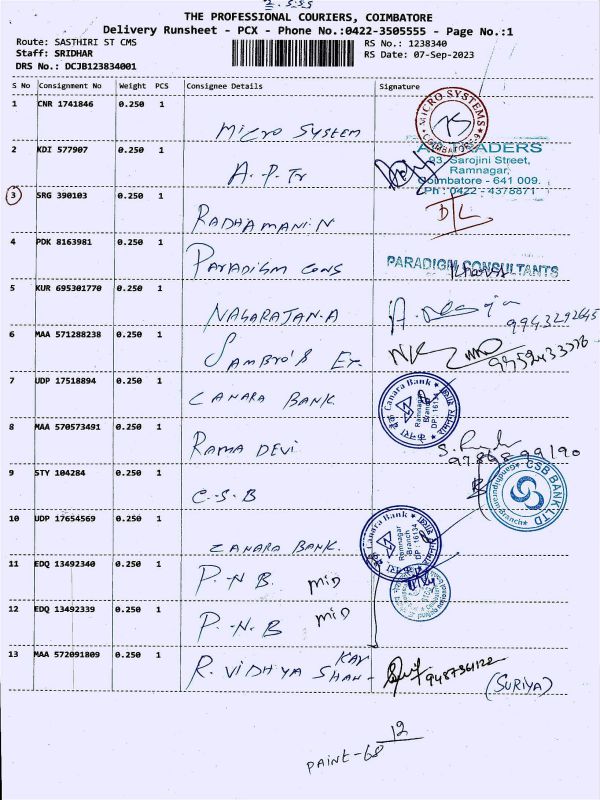 THE PROFESSIONAL COURIERS, COIMBATORE
Delivery Runsheet - PCX - Phone No.:0422-3505555 - Page No.:1
Route: SASTHIRI ST CMS
RS No.: 1238340
Staff: SRIDHAR
RS Date: 07-Sep-2023
DRS No.: DCJB123834001
S No Consignment No Weight PCS Consignee Details Signature
1 CNR 1741846 0.250 1 MICRO SYSTEM
MICRO SYSTEMS COIMBATORE-9
2 KDI 577907 0.250 1 A.P.Tr
TRADERS
93, Sarojini Street,
Ramnagar,
Coimbatore - 641 009.
Ph : 0422 - 4378871
3 SRG 390103 0.250 1 RADHAMANI.N D/L
4 PDK 8163981 0.250 1 PARADIGM CONS PARADIGM CONSULTANTS
5 KUR 695301770 0.250 1 NAGARAJAN.A
9943292645
6 MAA 571288238 0.250 1 SAMBRO'S ET.
7 UDP 17518894 0.250 1 CANARA BANK
Canara Bank Ramnagar Branch DP : 16134
8 MAA 570573491 0.250 1 RAMA DEVI
9789899190
9 STY 104284 0.250 1 C.S.B
CSB BANK LTD Gandhipuram Branch
10 UDP 17654569 0.250 1 CANARA BANK.
Canara Bank Ramnagar Branch DP : 16134
11 EDQ 13492340 0.250 1 P.N.B. MID
12 EDQ 13492339 0.250 1 P.N.B MID
13 MAA 572091809 0.250 1 R. VIDHYA KAY SHAN-
9487361122
(SURIYA)
PAINT-68 12